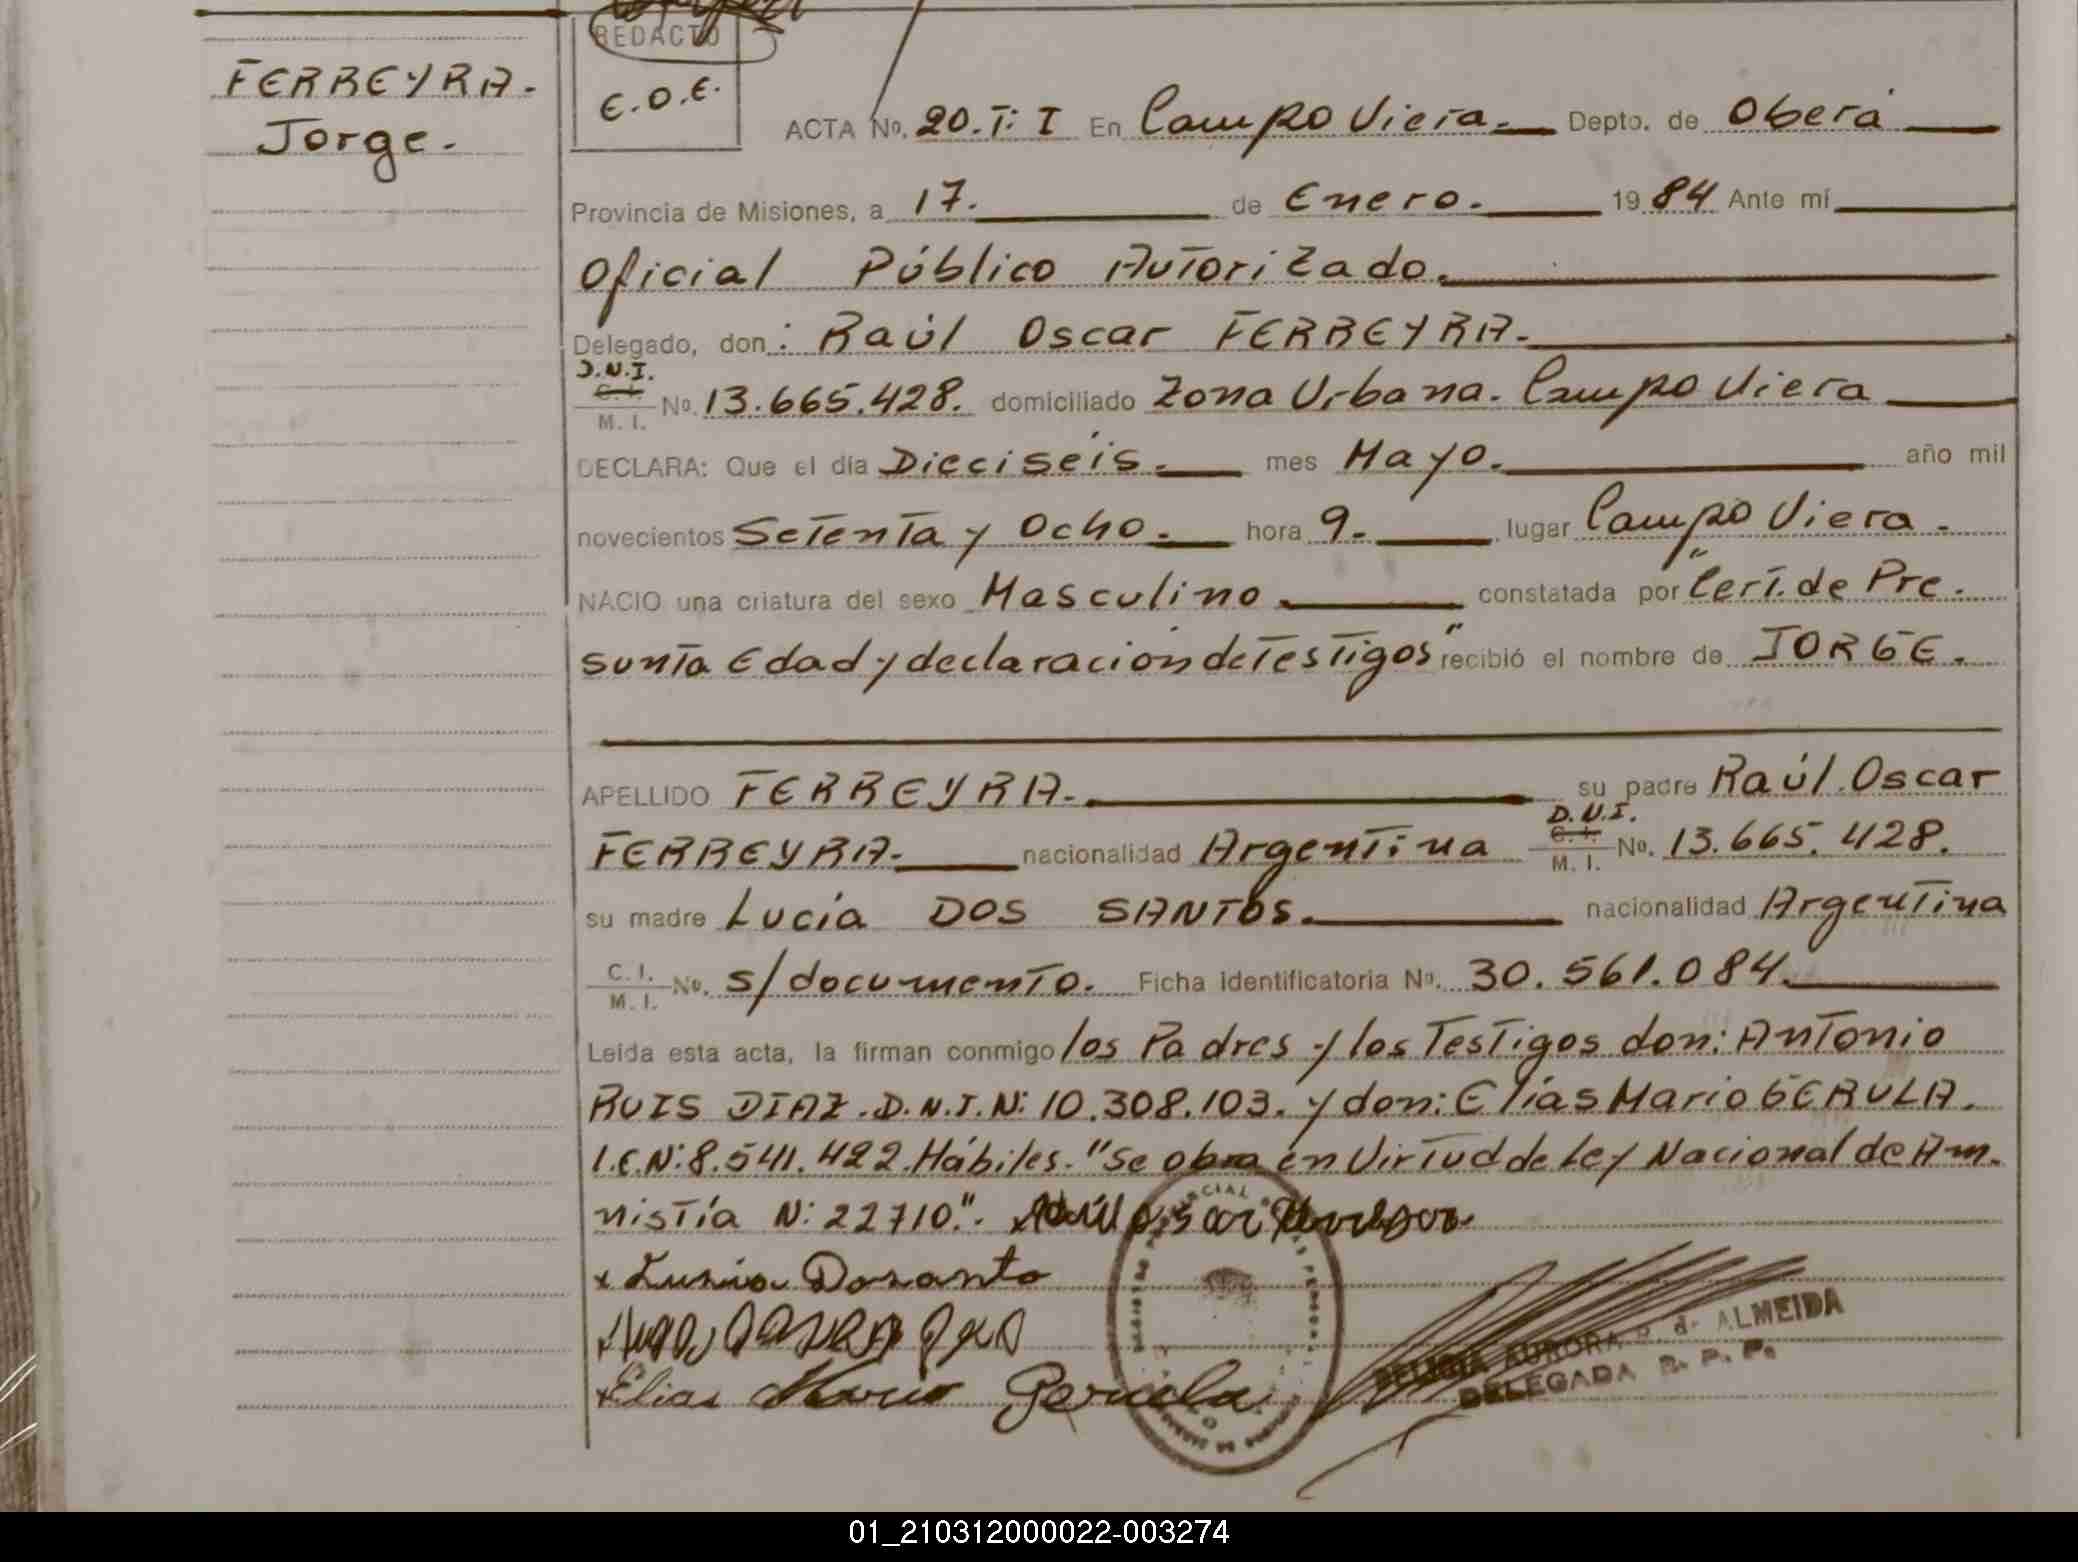 FERREYRA.
Jorge.
REDACTO
E.O.E.
ACTA No. 20. T: I En Campo Viera. Depto. de Oberá
Provincia de Misiones, a 17. de Enero. 1984 Ante mí
Oficial Público Autorizado.
Delegado, don: Raúl Oscar FERREYRA.
D.N.I.
C. I.
M. I. No. 13.665.428. domiciliado Zona Urbana. Campo Viera
DECLARA: Que el día Dieciséis. mes Mayo. año mil
novecientos Setenta y Ocho. hora 9. lugar Campo Viera.
NACIO una criatura del sexo Masculino. constatada por "Cert. de Pre.
sunta Edad y declaración de Testigos" recibió el nombre de JORGE.
APELLIDO FERREYRA. su padre Raúl Oscar
FERREYRA. nacionalidad Argentina D.N.I. C. I. M. I. No. 13.665.428.
su madre Lucía DOS SANTOS. nacionalidad Argentina
C. I.
M. I. No. s/documento. Ficha identificatoria No. 30.561.084.
Leída esta acta, la firman conmigo los Padres y los Testigos don: Antonio
RUIS DIAZ. D.N.I. N: 10.308.103. y don: Elías Mario GERULA.
L.E.N: 8.541.422. Hábiles. "Se obra en Virtud de Ley Nacional de Am.
nistía N: 22710.".
Elias Mario Gerula
AURORA d. de ALMEIDA
DELEGADA R. P. P.
01_210312000022-003274